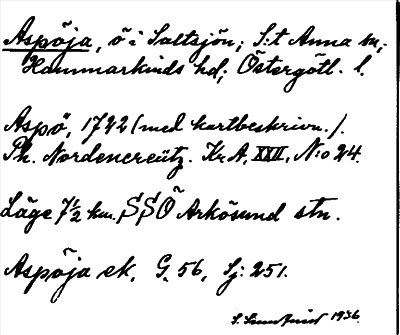 Aspöja, ö i Saltsjön; S:t Anna sn;
Hammarkinds hd; Östergötl. l.
Aspö, 1742 (med kartbeskrivn.).
Ph. Nordencreütz. Kr.A. XXII, N:o 24.
Läge 7½ km. SSÖ Arkösund stn.
Aspöja ek. G. 56, Sj: 251.
1936.